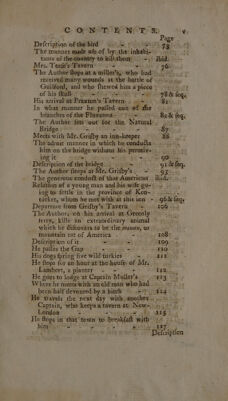 CONTENTS. v
Page
Deſcription of the bird - - 75
The manner made uſe of by the inhabi-
tants of the country to kill them - ibid.
Mrs. Teaſe's Tavern - - 76
The Author ſtops at a miller's, who had
received many wounds at the battle of
Guilford, and who ſhewed him a piece
of his ſkull - - 78 & ſeq.
His arrival at Tavern - 81
In what manner he paſſed one of the
branches of the Fluvanna - 82 & ſeq.
The Author ſets out for the Natural
Bridge - - 87
Meets with Mr. Griſby an inn-keeper 88
The adroit manner in which he conducts
him on the bridge without his perceiv-
ing it - - 90
Deſcription of the bridge - 91 & ſeq.
The Author ſleeps at Mr. Griſby's - 95
The generous conduct of that American ibid.
Relation of a young man and his wife go-
ing to ſettle in the province of Ken-
tucket, whom he met with at this inn - 96 & ſeq.
Departure from Griſby's Tavern 106
The Author, on his arrival at Greenly
ferry, kills an extraordinary animal
which he diſcovers to be the monax, or
mountain rat of America 108
Deſcription of it - - 109
He paſſes the Gap - - 110
His dogs ſpring five wild turkies - 111
He ſtops for an hour at the houſe of Mr.
Lambert, a planter - - 112
He goes to lodge at Captain Muller's 113
Where he meets with an old man who had
been half devoured by a bitch - 114
He travels the next day with another
Captain, who keeps a tavern at New-
London - - 115
He ſtops in that town to breakfaſt with
him - - 117
Deſcription